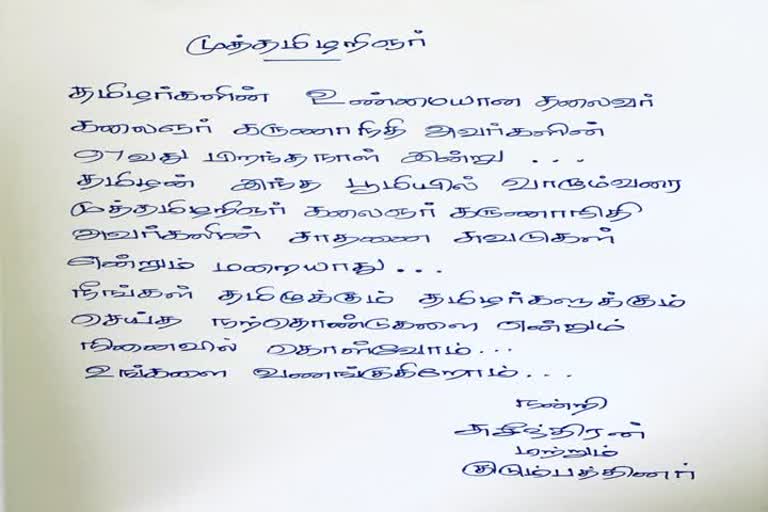 முத்தமிழறிஞர்
தமிழர்களின் உண்மையான தலைவர்
கலைஞர் கருணாநிதி அவர்களின்
97வது பிறந்தநாள் இன்று ...
தமிழன் இந்த பூமியில் வாழும்வரை
முத்தமிழறிஞர் கலைஞர் கருணாநிதி
அவர்களின் சாதனை சுவடுகள்
என்றும் மறையாது...
நீங்கள் தமிழுக்கும் தமிழர்களுக்கும்
செய்த நற்தொண்டுகளை என்றும்
நினைவில் கொள்வோம்...
உங்களை வணங்குகிறோம்...
நன்றி
சுசீந்திரன்
மற்றும்
குடும்பத்தினர்